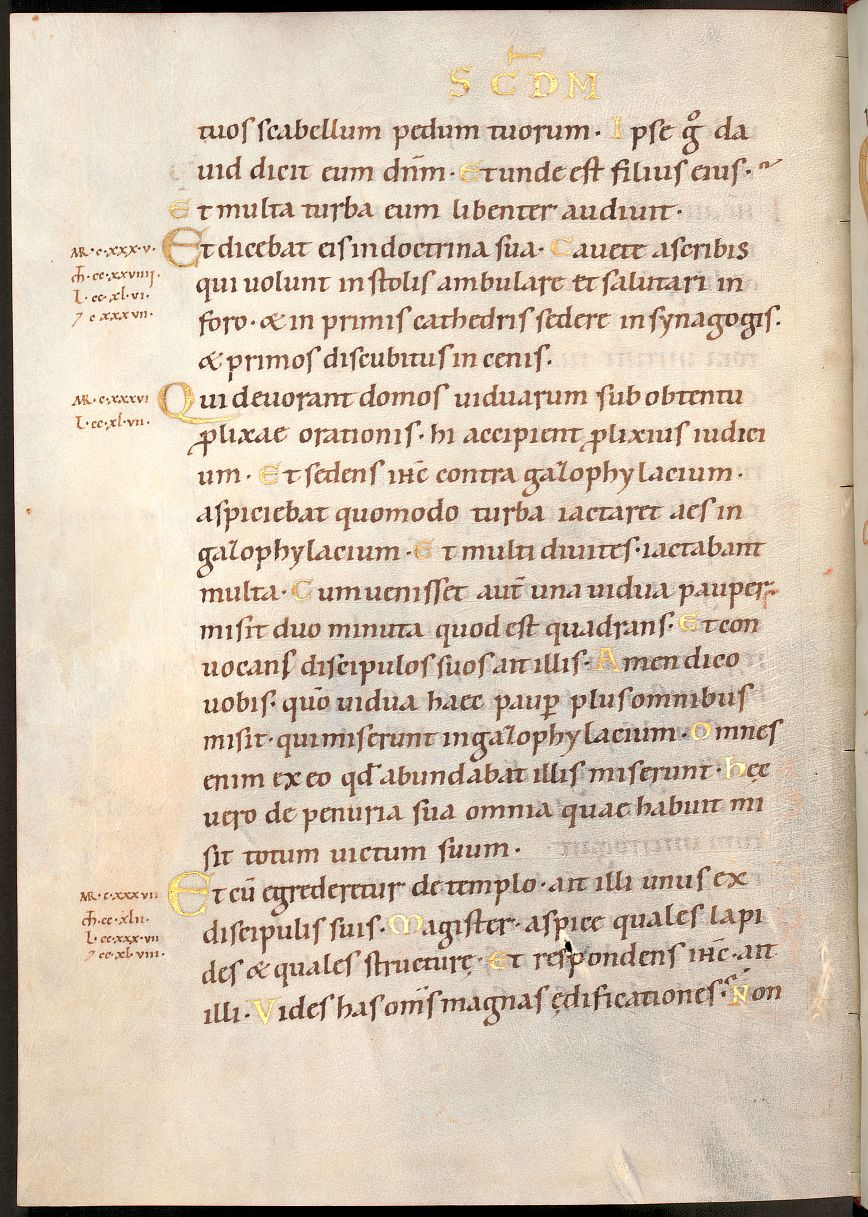 S C D M
tuos scabellum pedum tuorum. Ipse g̊ da
uid dicit eum dn̄m. Et unde est filius eius.
Et multa turba eum libenter audiuit.
Et dicebat eis in doctrina sua. Cauete a scribis
MR. c. xxx. v.
qui uolunt in stolis ambulare et salutari in
ꝉ. cc. xl. vi.
foro. & in primis cathedris sedere in synagogis.
c xxx vii.
& primos discubitus in cenis.
Qui deuorant domos uiduarum sub obtentu
MR. c. xxxvi
L. cc. xl. vii.
ꝓlixae orationis. hi accipient ꝓlixius iudici
um. Et sedens ihc̄ contra gazophylacium.
aspiciebat quomodo turba iactaret aes in
gazophylacium. Et multi diuites. iactabant
multa. Cum uenisset aut̄ una uidua pauper
misit duo minuta quod est quadrans. Et con
uocans discipulos suos ait illis. Amen dico
uobis. quō uidua haec paup̄ plus omnibus
misit. qui miserunt in gazophylacium. Omnes
enim ex eo qd̄ abundabat illis miserunt. Hęc
uero de penuria sua omnia quae habuit mi
sit totum uictum suum.
Et cū egrederetur de templo. ait illi unus ex
MR. c. xxx vii
discipulis suis. Magister. aspice quales lapi
des & quales structurę. Et respondens ihc̄. ait
illi. Vides has om̄s magnas ędificationes. Non